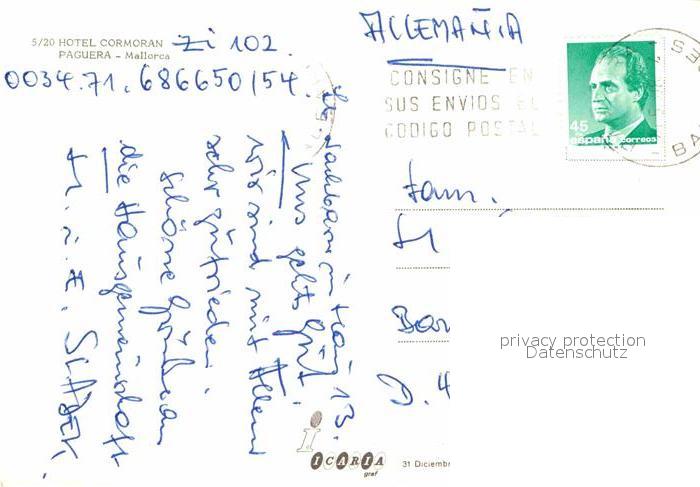 5/20 HOTEL CORMORAN
PAGUERA - Mallorca
Zi 102.
0034.71.686650/54.
ALLEMAÑIA
CONSIGNE EN
SUS ENVIOS EL
CODIGO POSTAL
45
españa correos
Fam.
D. 4
Nachbarn in Haus 13.
Uns geht's gut.
wir sind mit Allem
sehr zufrieden.
schöne Grüße an
die Hausgemeinschaft
H. u. E. SLADEK.
ICARIA
graf
31 Diciembr
privacy protection
Datenschutz